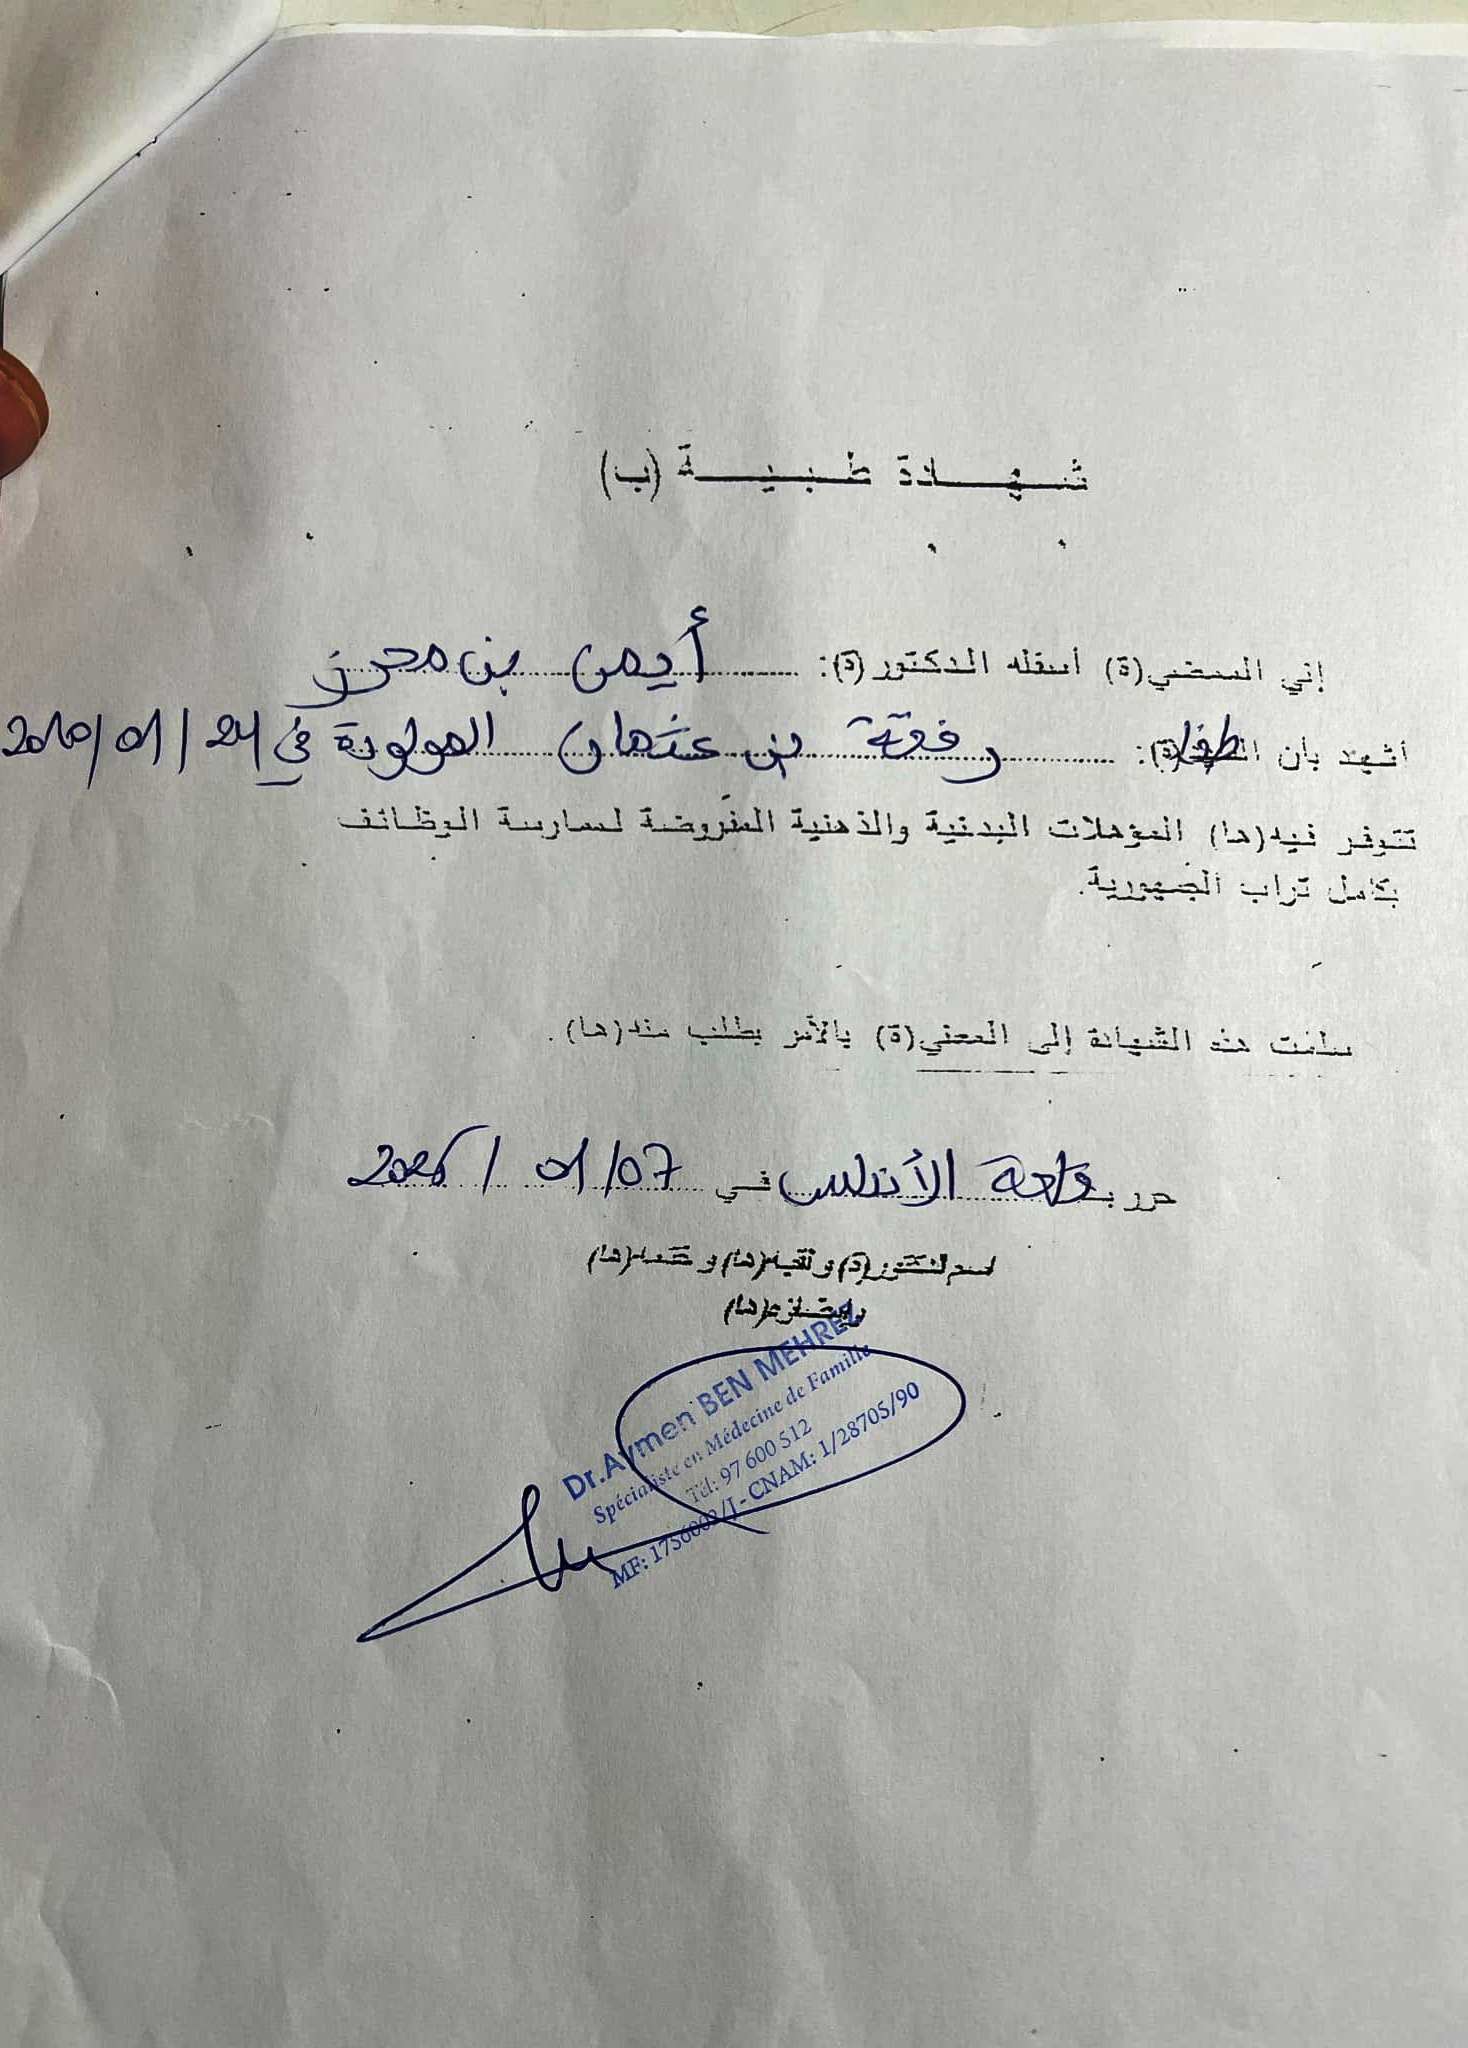 شهادة طبية (ب)
إني الممضي(ة) أسفله الدكتور(ة): أيمن بن محرز
أشهد بأن الطفلة: رفقة بن عثمان المولودة في 24/01/
تتوفر فيه(ها) المؤهلات البدنية والذهنية المفروضة لممارسة الوظائف
بكامل تراب الجمهورية.
سلمت هذه الشهادة إلى المعني(ة) بالأمر بطلب منه(ها).
حرر بواحة الأندلس في 07/01/2026
اسم الدكتور(ة) ولقبه(ها) و ختمه(ها)
وإمضاؤه(ها)
Dr.Aymen BEN MEHREZ
Spécialiste en Médecine de Famille
Tél: 97 600 512
MF: /J - CNAM: 1/28705/90